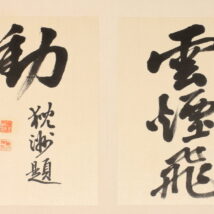 雲煙飛
動
狄洲題